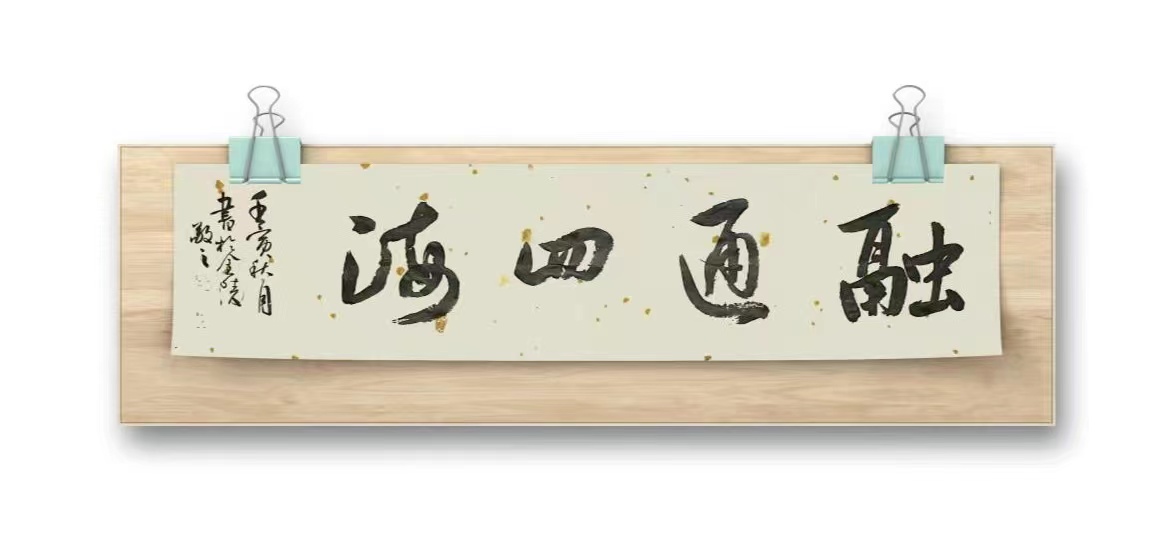 融通四海
壬寅秋月
書於金陵
敬之